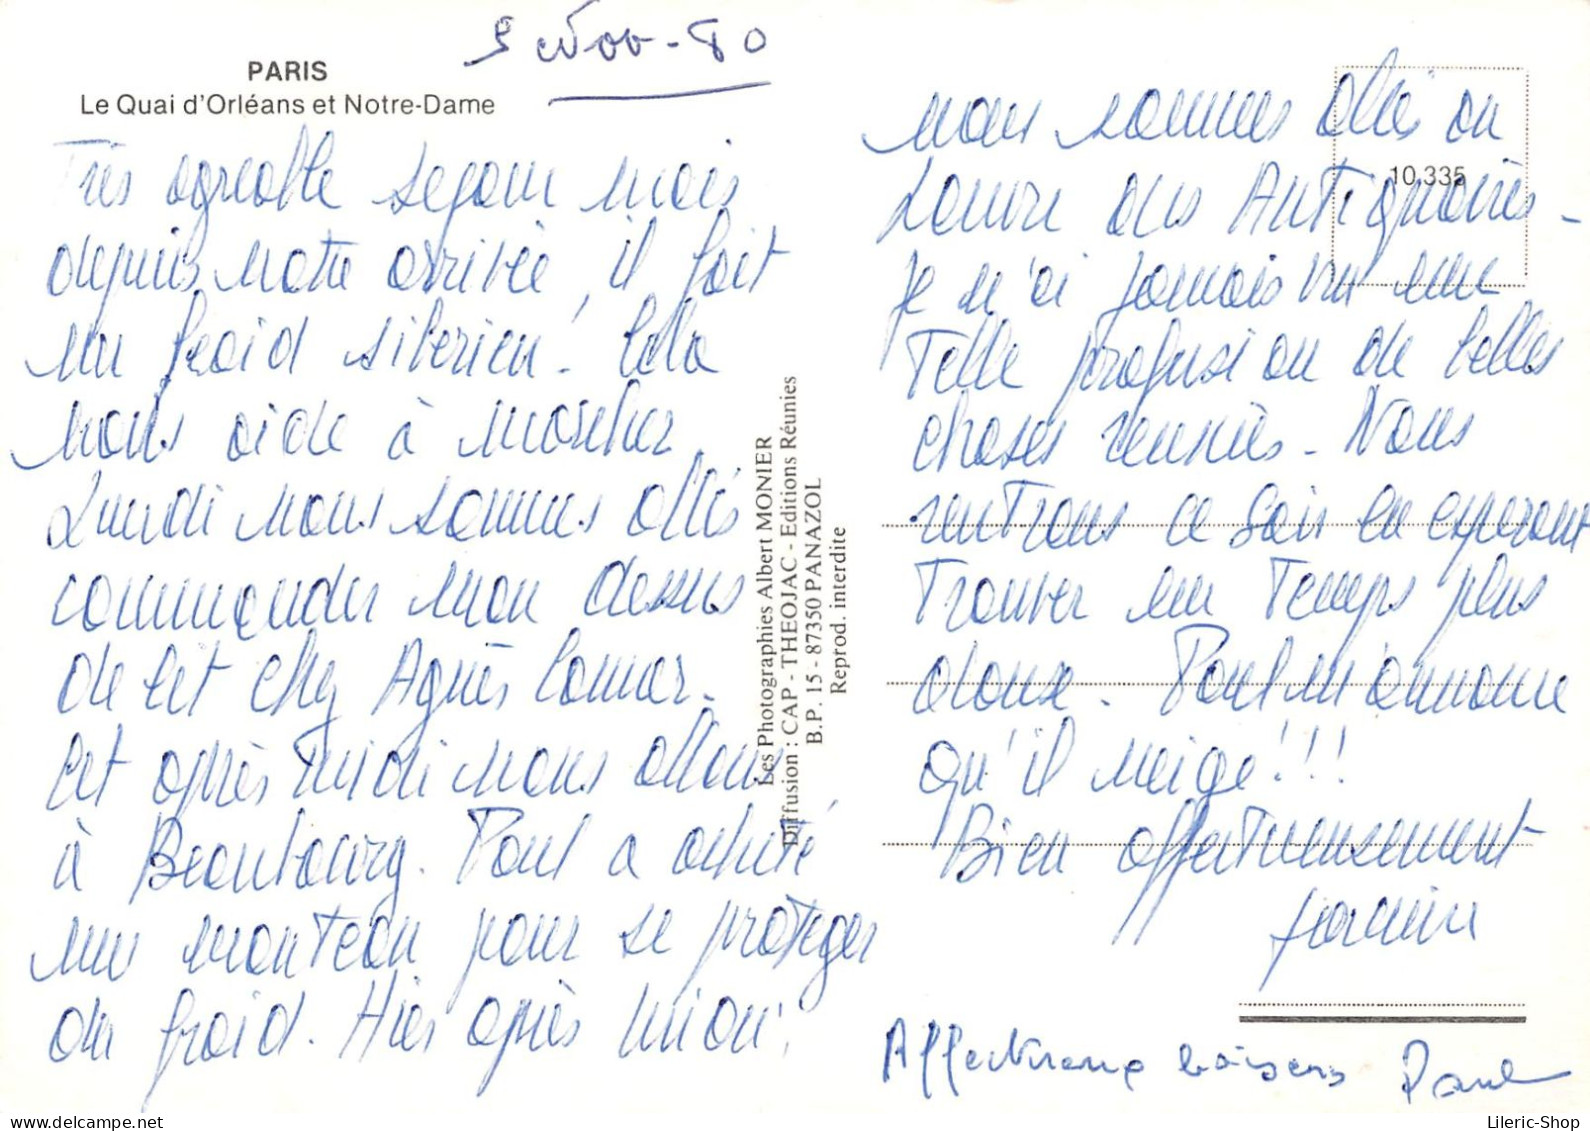 PARIS
Le Quai d'Orléans et Notre-Dame
5 Nov - 80
Très agréable sejour mais
depuis notre arrivée, il fait
un froid siberien! Cela
nous aide à marcher
Lundi nous sommes allés
commander mon dessus
de lit chez Agnès Comar.
Cet après midi nous allons
à Beaubourg. Paul a acheté
un manteau pour se protéger
du froid. Hier après midi,
nous sommes allés au
Louvre des Antiquaires -
je n'ai jamais vu une
telle profusion de belles
choses reunies - Nous
rentrons ce soir en esperant
trouver un temps plus
doux. Paul m'annonce
qu'il neige!!!
Bien affectueusement
Affectueux baisers Paul
10.335
Les Photographies Albert MONIER
Diffusion : CAP - THEOJAC - Editions Réunies
B.P. 15 - 87350 PANAZOL
Reprod. interdite
Lileric-Shop